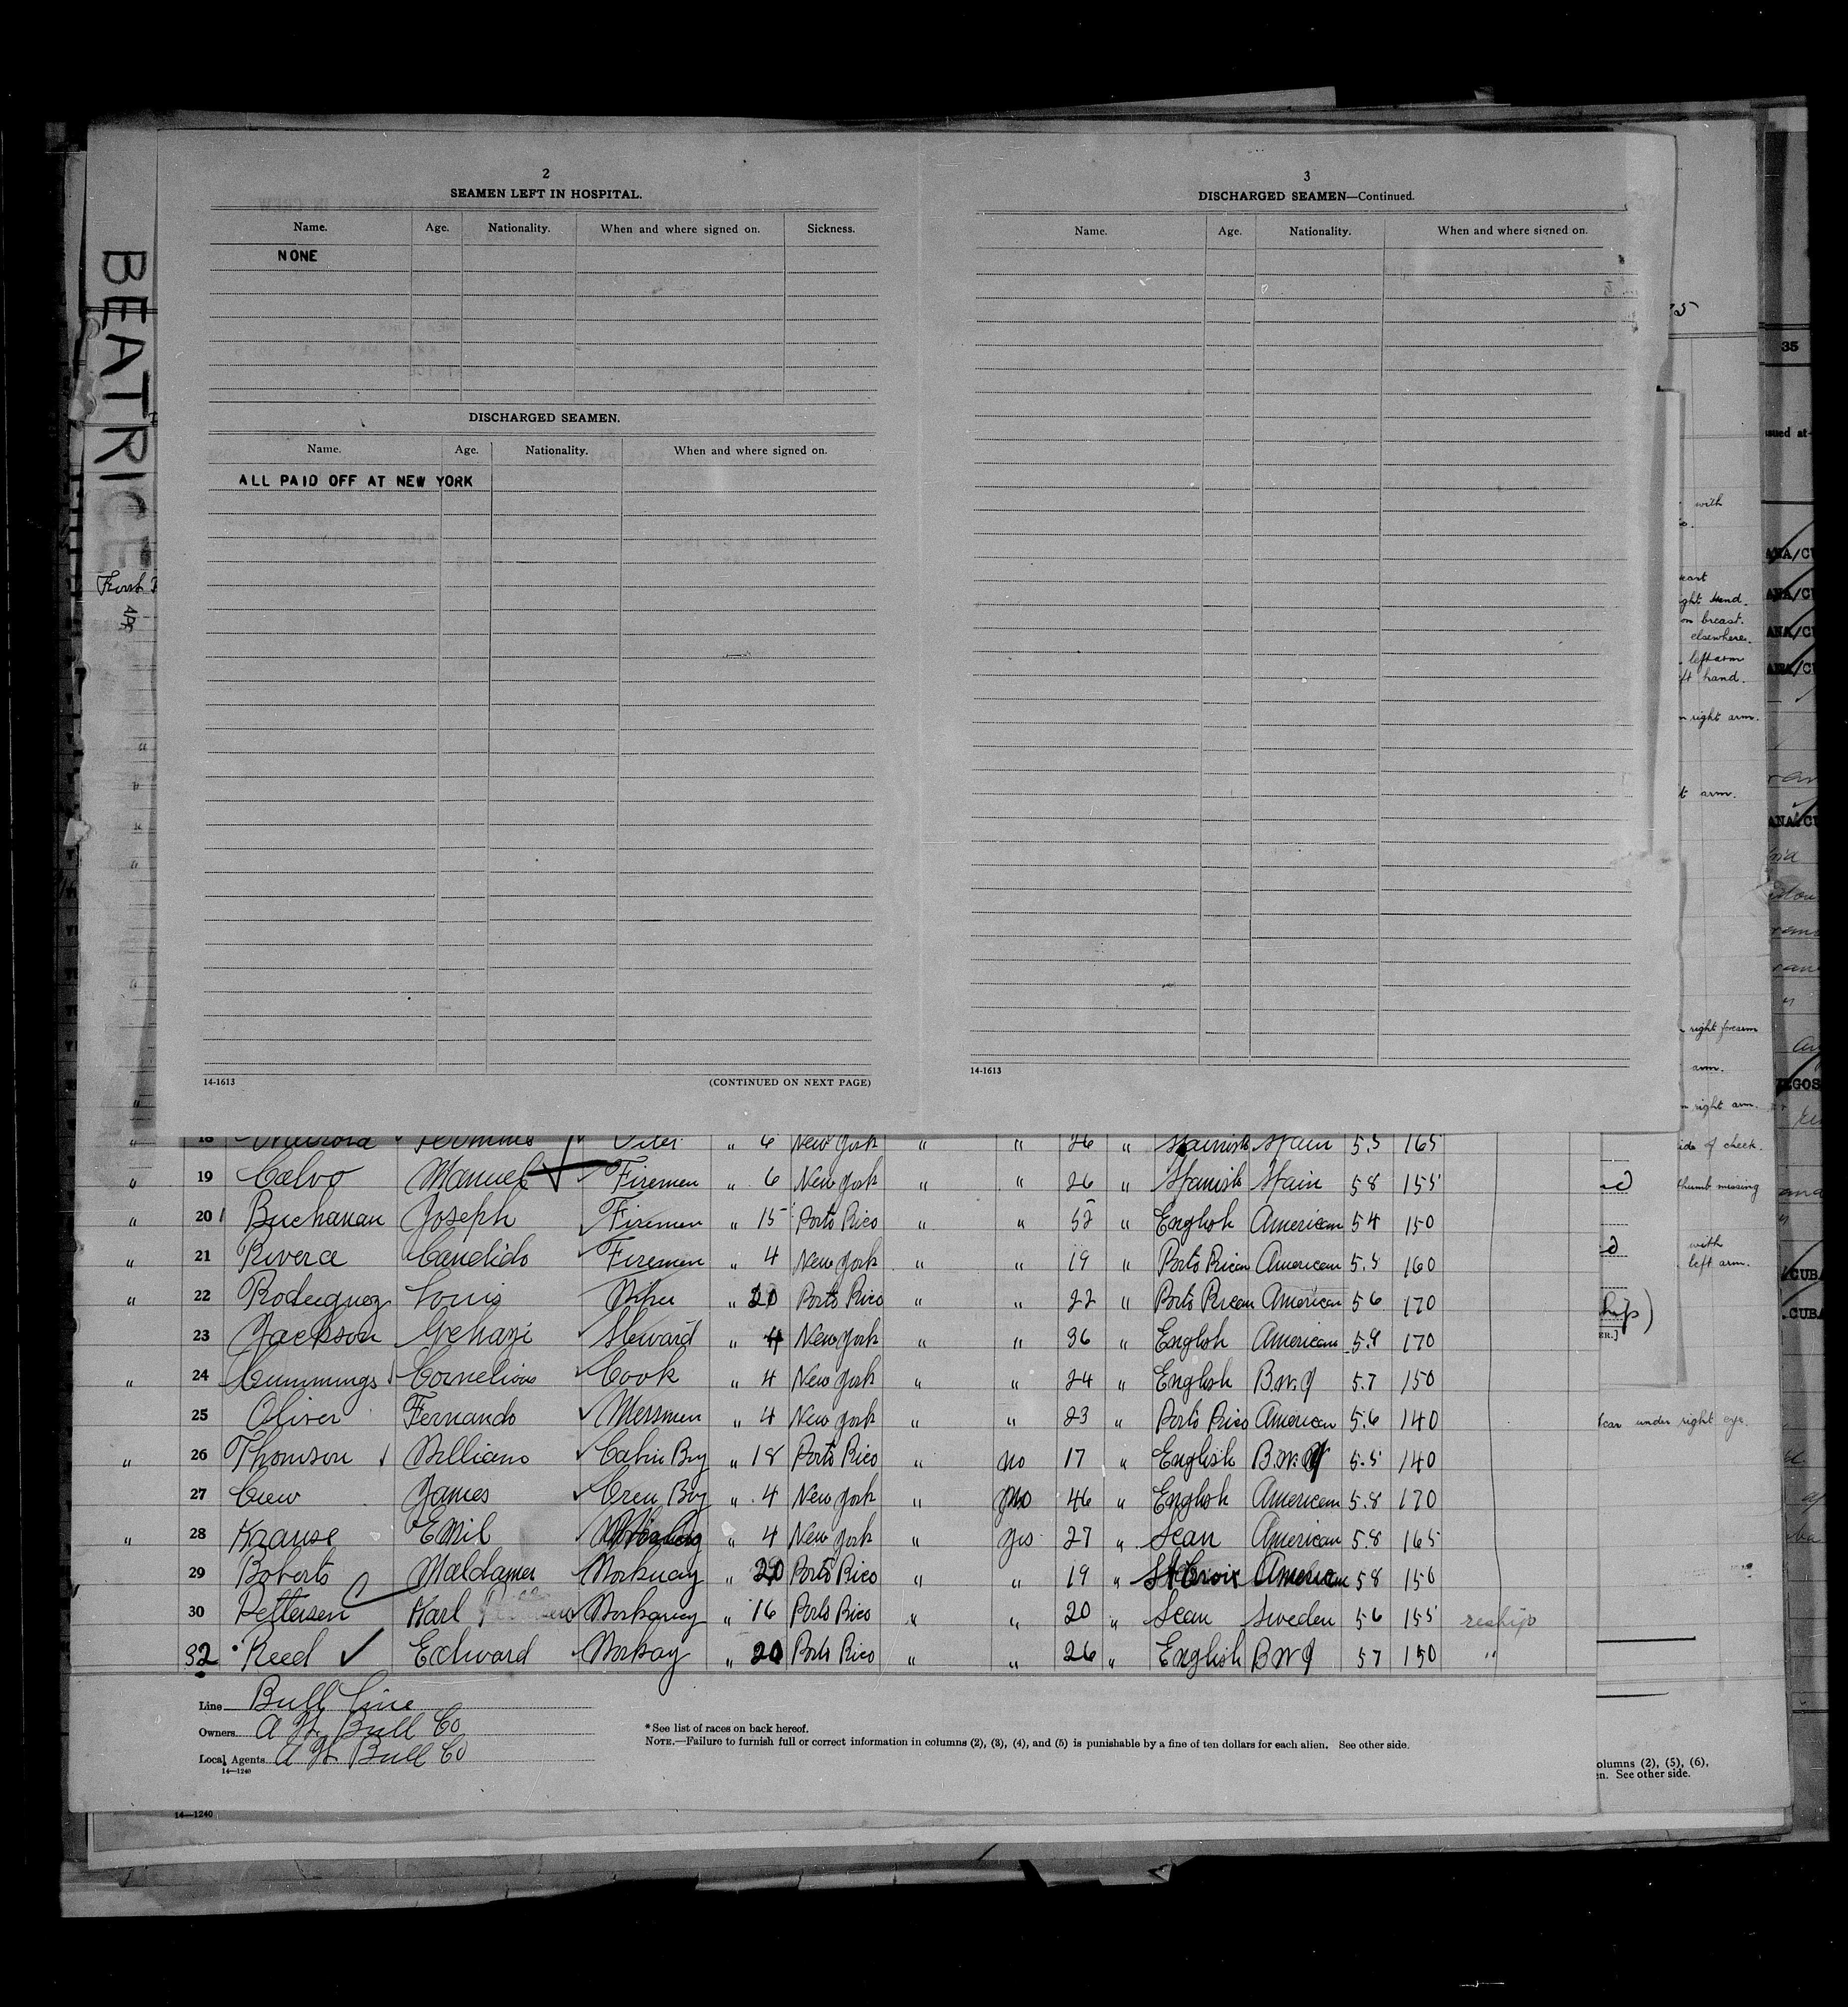 2
SEAMEN LEFT IN HOSPITAL.
Name. Age. Nationality. When and where signed on. Sickness.
NONE
DISCHARGED SEAMEN.
Name. Age. Nationality. When and where signed on.
ALL PAID OFF AT NEW YORK
14-1613 (CONTINUED ON NEXT PAGE)
3
DISCHARGED SEAMEN—Continued.
Name. Age. Nationality. When and where signed on.
14-1613
BEATRICE
First
35
sued at
with
ght Hand.
on breast.
elsewhere.
left arm
ft hand.
right arm.
arm.
right forearm
arm.
right arm.
ide of cheek.
thumb missing
with
left arm.
hip)
ER.]
scar under right eye.
18 " 6 New York " " 26 " Spanish Spain 5.5 165
" 19 Calvo Manuel Firemen " 6 New York " " 26 " Spanish Spain 58 155
" 20 Buchanan Joseph Firemen " 15 Porto Rico " " 52 " English American 54 150
" 21 Rivera Candido Firemen " 4 New York " " 19 " Porto Rican American 5.5 160
" 22 Rodeiguez Louis Wiper " 20 Porto Rico " " 22 " Porto Rican American 56 170
23 Jackson Gehazi Steward " 4 New York " " 36 " English American 5.8 170
" 24 Cummings Cornelious Cook " 4 New York " " 24 " English B.W.I 5.7 150
25 Oliver Fernando Messmen " 4 New York " " 23 " Porto Rico American 5.6 140
" 26 Thomson William Cabin Boy " 18 Porto Rico " no 17 " English B.W.I 5.5 140
27 Crew James Crew Boy " 4 New York " no 46 " English American 5.8 170
" 28 Krause Emil " 4 New York " yes 27 " Scan American 5.8 165
29 Roberts Waldamer Workway " 20 Porto Rico " " 19 " St Croix American 58 150
30 Pettersen Karl Workaway " 16 Porto Rico " " 20 " Scan Sweden 56 155 reship
32 Reed Edward Workay " 20 Porto Rico " " 26 " English B W I 57 150 "
Line Bull Line
Owners A H Bull Co
Local Agents A H Bull Co
14—1240
*See list of races on back hereof.
NOTE.—Failure to furnish full or correct information in columns (2), (3), (4), and (5) is punishable by a fine of ten dollars for each alien. See other side.
olumns (2), (5), (6),
en. See other side.
14—1240